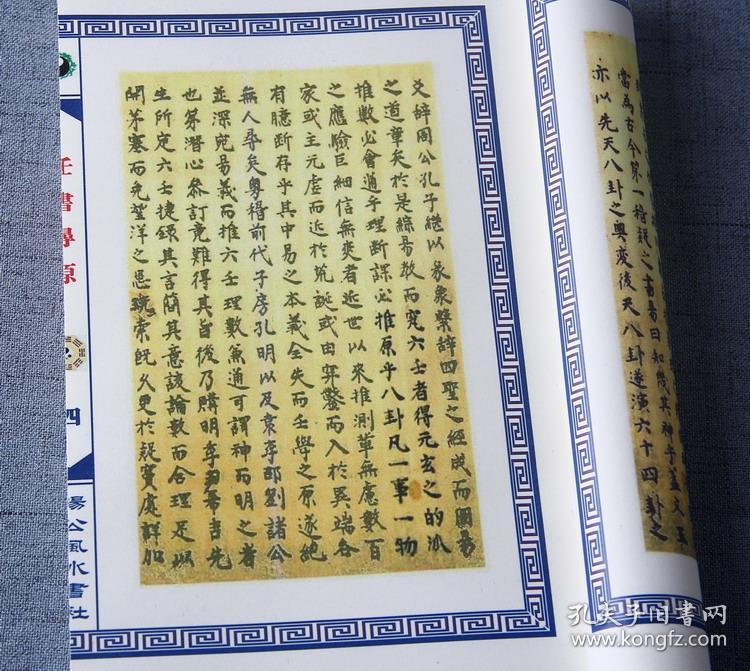 當為古今第一稽疑之書易曰知幾其神乎蓋文王
亦以先天八卦之奧變後天八卦遂演六十四卦之
爻辭周公孔子繼以彖象繫辭四聖之經成而國易
之道章矣於是綜易教而究六壬者得元玄之的派
推數必會通乎理斷課必推原乎八卦凡一事一物
之應驗巨細信無爽者近世以來推測輩無慮數百
家或主元虛而近於荒誕或由穿鑿而入於異端各
有臆斷存乎其中易之本義全失而壬學之原遂絕
無人尋矣粵稽前代子房孔明以及袁李邵劉諸公
並深究易義而推六壬理數兼通可謂神而明之者
也第潛心參訂竟難得其旨後乃購明李希吉先
生所定六壬捷錄其言簡其意該論數而合理足以
開茅塞而免望洋之惑玩索既久更於疑竇處詳加
壬書尋原
四
楊公風水書社
孔夫子旧書网
www.kongfz.com